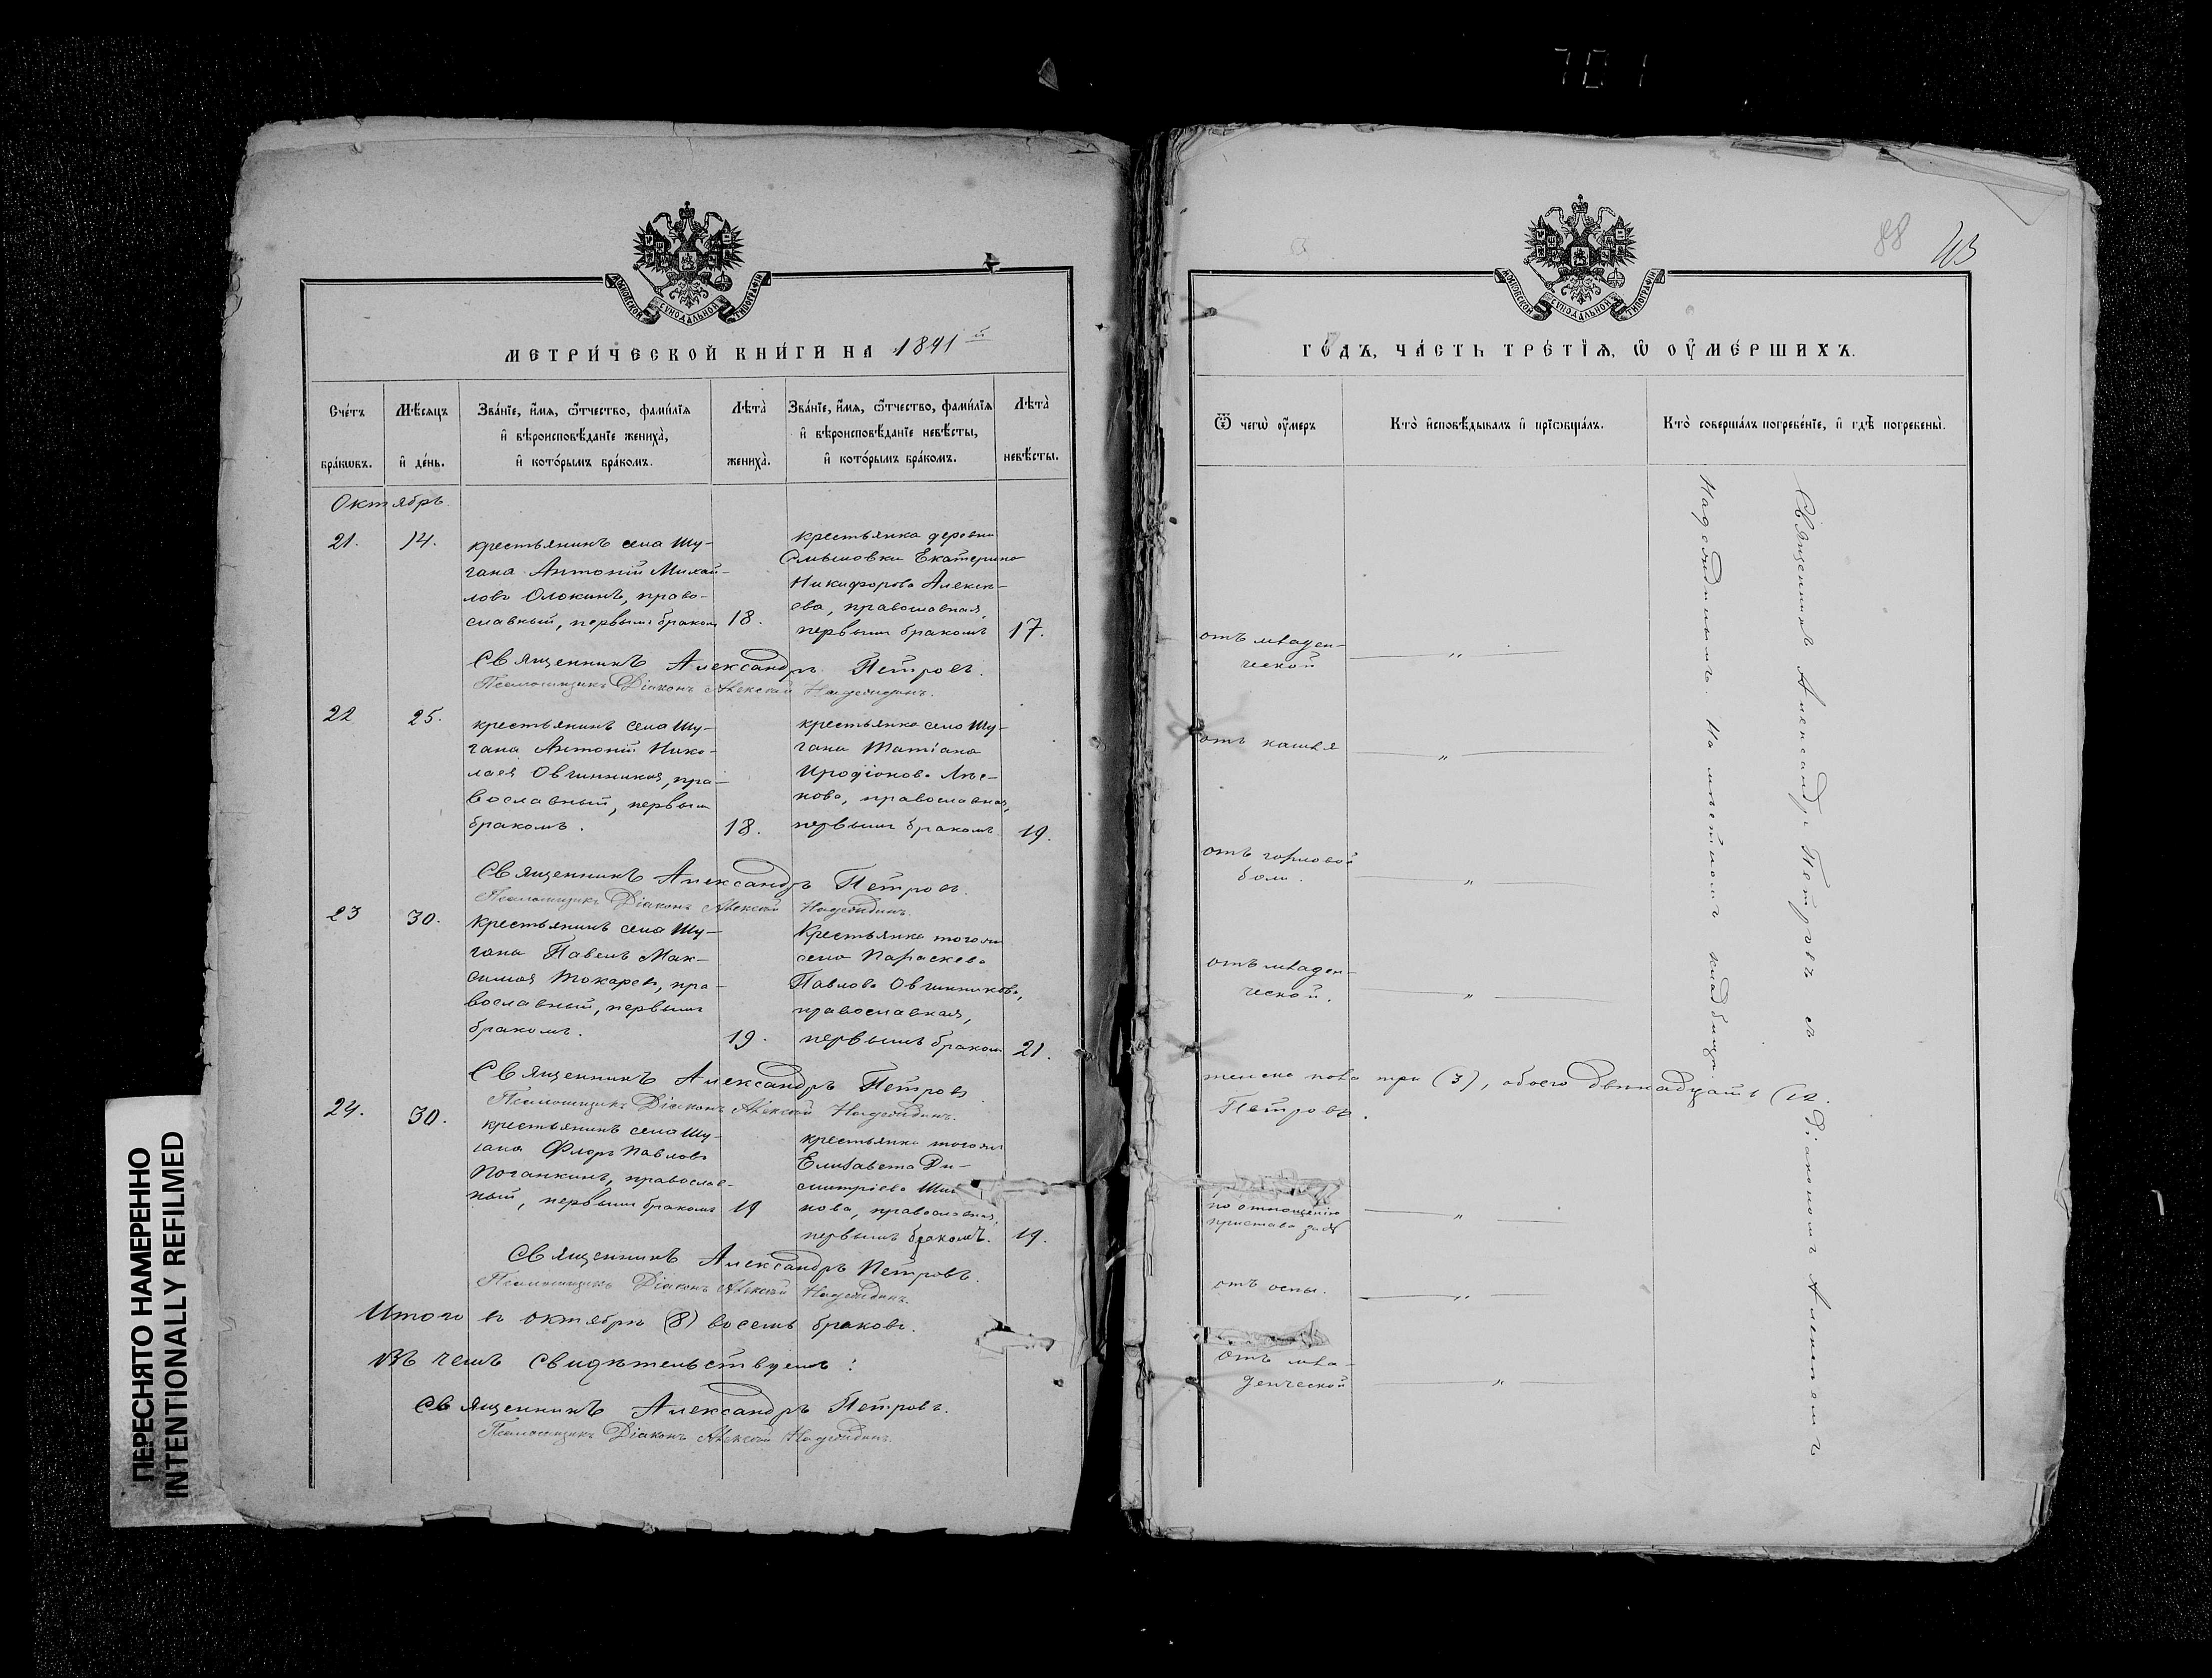 701
ПЕРЕСНЯТО НАМЕРЕННО
INTENTIONALLY REFILMED
МОСКОВСКОЙ СѴНОДАЛЬНОЙ ТИПОГРАФІИ
МЕТРИ́ЧЕСКОЙ КНИ́ГИ НА 1891й
Сче́тъ бра́кωвъ.
Мѣ́сяцъ и҆ де́нь.
Зва́нїе, и҆́мя, ѻ҆́тчество, фами́лїя
и҆ вѣроисповѣ́данїе жениха̀,
и҆ кото́рымъ бра́комъ.
Лѣта̀ жениха̀.
Зва́нїе, и҆́мя, ѻ҆́тчество, фами́лїя
и҆ вѣроисповѣ́данїе невѣ́сты,
и҆ кото́рымъ бра́комъ.
Лѣта̀ невѣ́сты.
Октябрь.
21.
14.
крестьянинъ села Шу-
гана Антоній Михай-
ловъ Олокинъ, право-
славный, первымъ бракомъ
18.
крестьянка деревни
Екатерина
Никифорова Алексѣ-
ева, православная,
первымъ бракомъ
17.
Священникъ Александръ Петровъ.
Псаломщикъ Діаконъ Алексѣй Надеждинъ.
22
25.
крестьянинъ села Шу-
гана Антоній Нико-
лаевъ Овчинниковъ, пра-
вославный, первымъ
бракомъ.
18.
крестьянка села Шу-
гана Татіана
Иродіонова
православная,
первымъ бракомъ
19.
Священникъ Александръ Петровъ.
Псаломщикъ Діаконъ Алексѣй Надеждинъ.
23
30.
Крестьянинъ села Шу-
гана Павелъ Мак-
симовъ Токаревъ, пра-
вославный, первымъ
бракомъ.
19.
Крестьянка того же
села Параскева
Павлова Овчинникова,
православная,
первымъ бракомъ
21.
Священникъ Александръ Петровъ
Псаломщикъ Діаконъ Алексѣй Надеждинъ.
24.
30.
крестьянинъ села Шу-
гана Флоръ Павловъ
Поганкинъ, православ-
ный, первымъ бракомъ
19
крестьянка того же
Елисавета Ди-
митріева
нова, православная,
первымъ бракомъ.
19.
Священникъ Александръ Петровъ.
Псаломщикъ Діаконъ Алексѣй Надеждинъ.
Итого въ октябрѣ (8) восемь браковъ.
Въ чемъ свидѣтельствуемъ:
Священникъ Александръ Петровъ.
Псаломщикъ Діаконъ Алексѣй Надеждинъ.
88
МОСКОВСКОЙ СѴНОДАЛЬНОЙ ТИПОГРАФІИ
ГО́ДЪ, ЧА́СТЬ ТРЕ́ТЇЯ, Ѡ҆ ОУ҆МЕ́РШИХЪ.
Ѿ чегѡ̀ оу҆́меръ
Кто̀ и҆сповѣ́дывалъ и҆ прїѡбща́лъ.
Кто̀ соверша́лъ погребе́нїе, и҆ гдѣ̀ погребены̀.
отъ младен-
ческой
"
отъ кашля
"
отъ горловой
боли.
"
отъ младен-
ческой.
"
женска пола три (3), обоего двѣнадцать (12.
Петровъ.
по отношенію
пристава
"
отъ оспы.
"
отъ мла-
денческой
"
Священникъ Александръ Петровъ съ Діакономъ Алексѣемъ
Надеждинымъ. На мѣстномъ кладбищѣ.